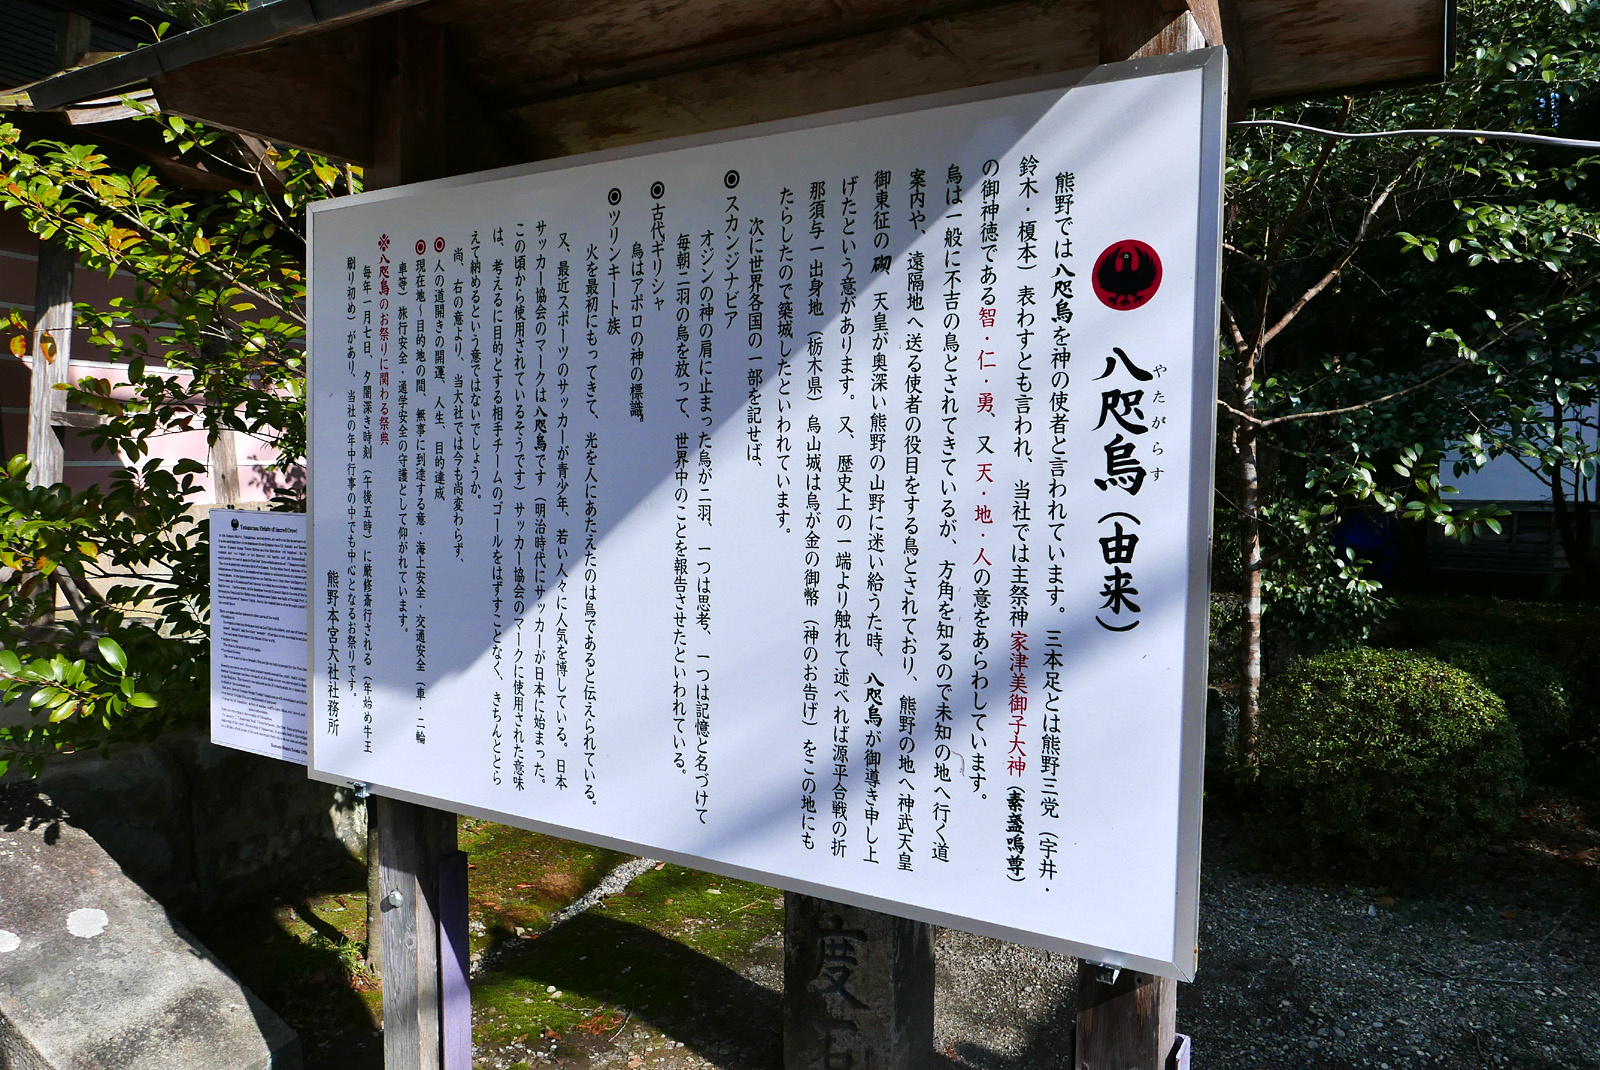 八咫烏（由来）
やたがらす
熊野では八咫烏を神の使者と言われています。三本足とは熊野三党（宇井・
鈴木・榎本）表わすとも言われ、当社では主祭神家津美御子大神（素盞嗚尊）
の御神徳である智・仁・勇、又天・地・人の意をあらわしています。
烏は一般に不吉の鳥とされてきているが、方角を知るので未知の地へ行く道
案内や、遠隔地へ送る使者の役目をする鳥とされており、熊野の地へ神武天皇
御東征の砌、天皇が奥深い熊野の山野に迷い給うた時、八咫烏が御導き申し上
げたという意があります。又、歴史上の一端より触れて述べれば源平合戦の折
那須与一出身地（栃木県）烏山城は烏が金の御幣（神のお告げ）をこの地にも
たらしたので築城したといわれています。
次に世界各国の一部を記せば、
◉スカンジナビア
オジンの神の肩に止まった烏が二羽、一つは思考、一つは記憶と名づけて
毎朝二羽の烏を放って、世界中のことを報告させたといわれている。
◉古代ギリシャ
烏はアポロの神の標識。
◉ツリンキート族
火を最初にもってきて、光を人にあたえたのは烏であると伝えられている。
又、最近スポーツのサッカーが青少年、若い人々に人気を博している。日本
サッカー協会のマークは八咫烏です（明治時代にサッカーが日本に始まった。
この頃から使用されているそうです）サッカー協会のマークに使用された意味
は、考えるに目的とする相手チームのゴールをはずすことなく、きちんととら
えて納めるという意ではないでしょうか。
尚、右の意より、当大社では今も尚変わらず、
◉人の道開きの開運、人生、目的達成
◉現在地〜目的地の間、無事に到達する意・海上安全・交通安全（車・二輪
車等）旅行安全・通学安全の守護として仰がれています。
※八咫烏のお祭りに関わる祭典
毎年一月七日、夕闇深き時刻（午後五時）に厳修斎行される（年始め牛王
刷り初め）があり、当社の年中行事の中でも中心となるお祭りです。
熊野本宮大社社務所
度石